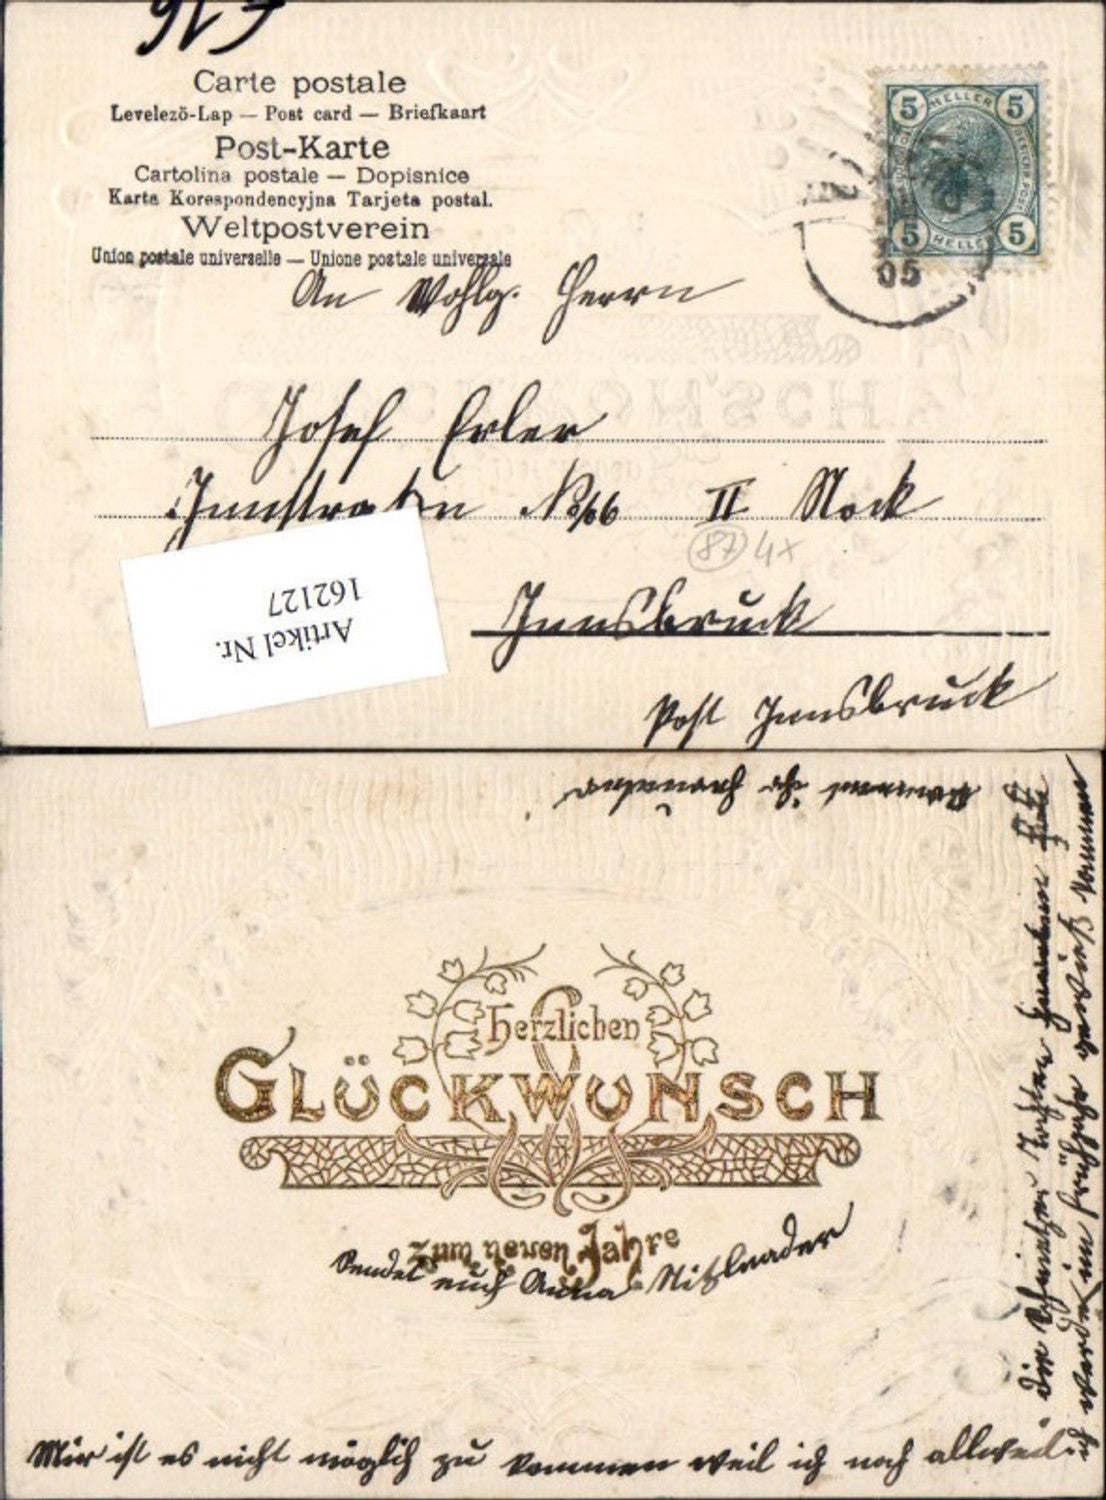 Carte postale
Levelező-Lap — Post card — Briefkaart
Post-Karte
Cartolina postale — Dopisnice
Karta Korespondencyjna Tarjeta postal.
Weltpostverein
Union postale universelle — Unione postale universale
5 HELLER 5
5 HELLER 5
05
An Wohlg. Herrn
Josef Erler
Innstraßen No 66 II Stock
87 4x
Innsbruck
Post Innsbruck
Artikel Nr.
162127
Herzlichen
GLÜCKWUNSCH
zum neuen Jahre
Sendet euch Anna
Mir ist es nicht möglich zu kommen weil ich noch allweil
die
ich werde im Frühjahr gewiß kommen